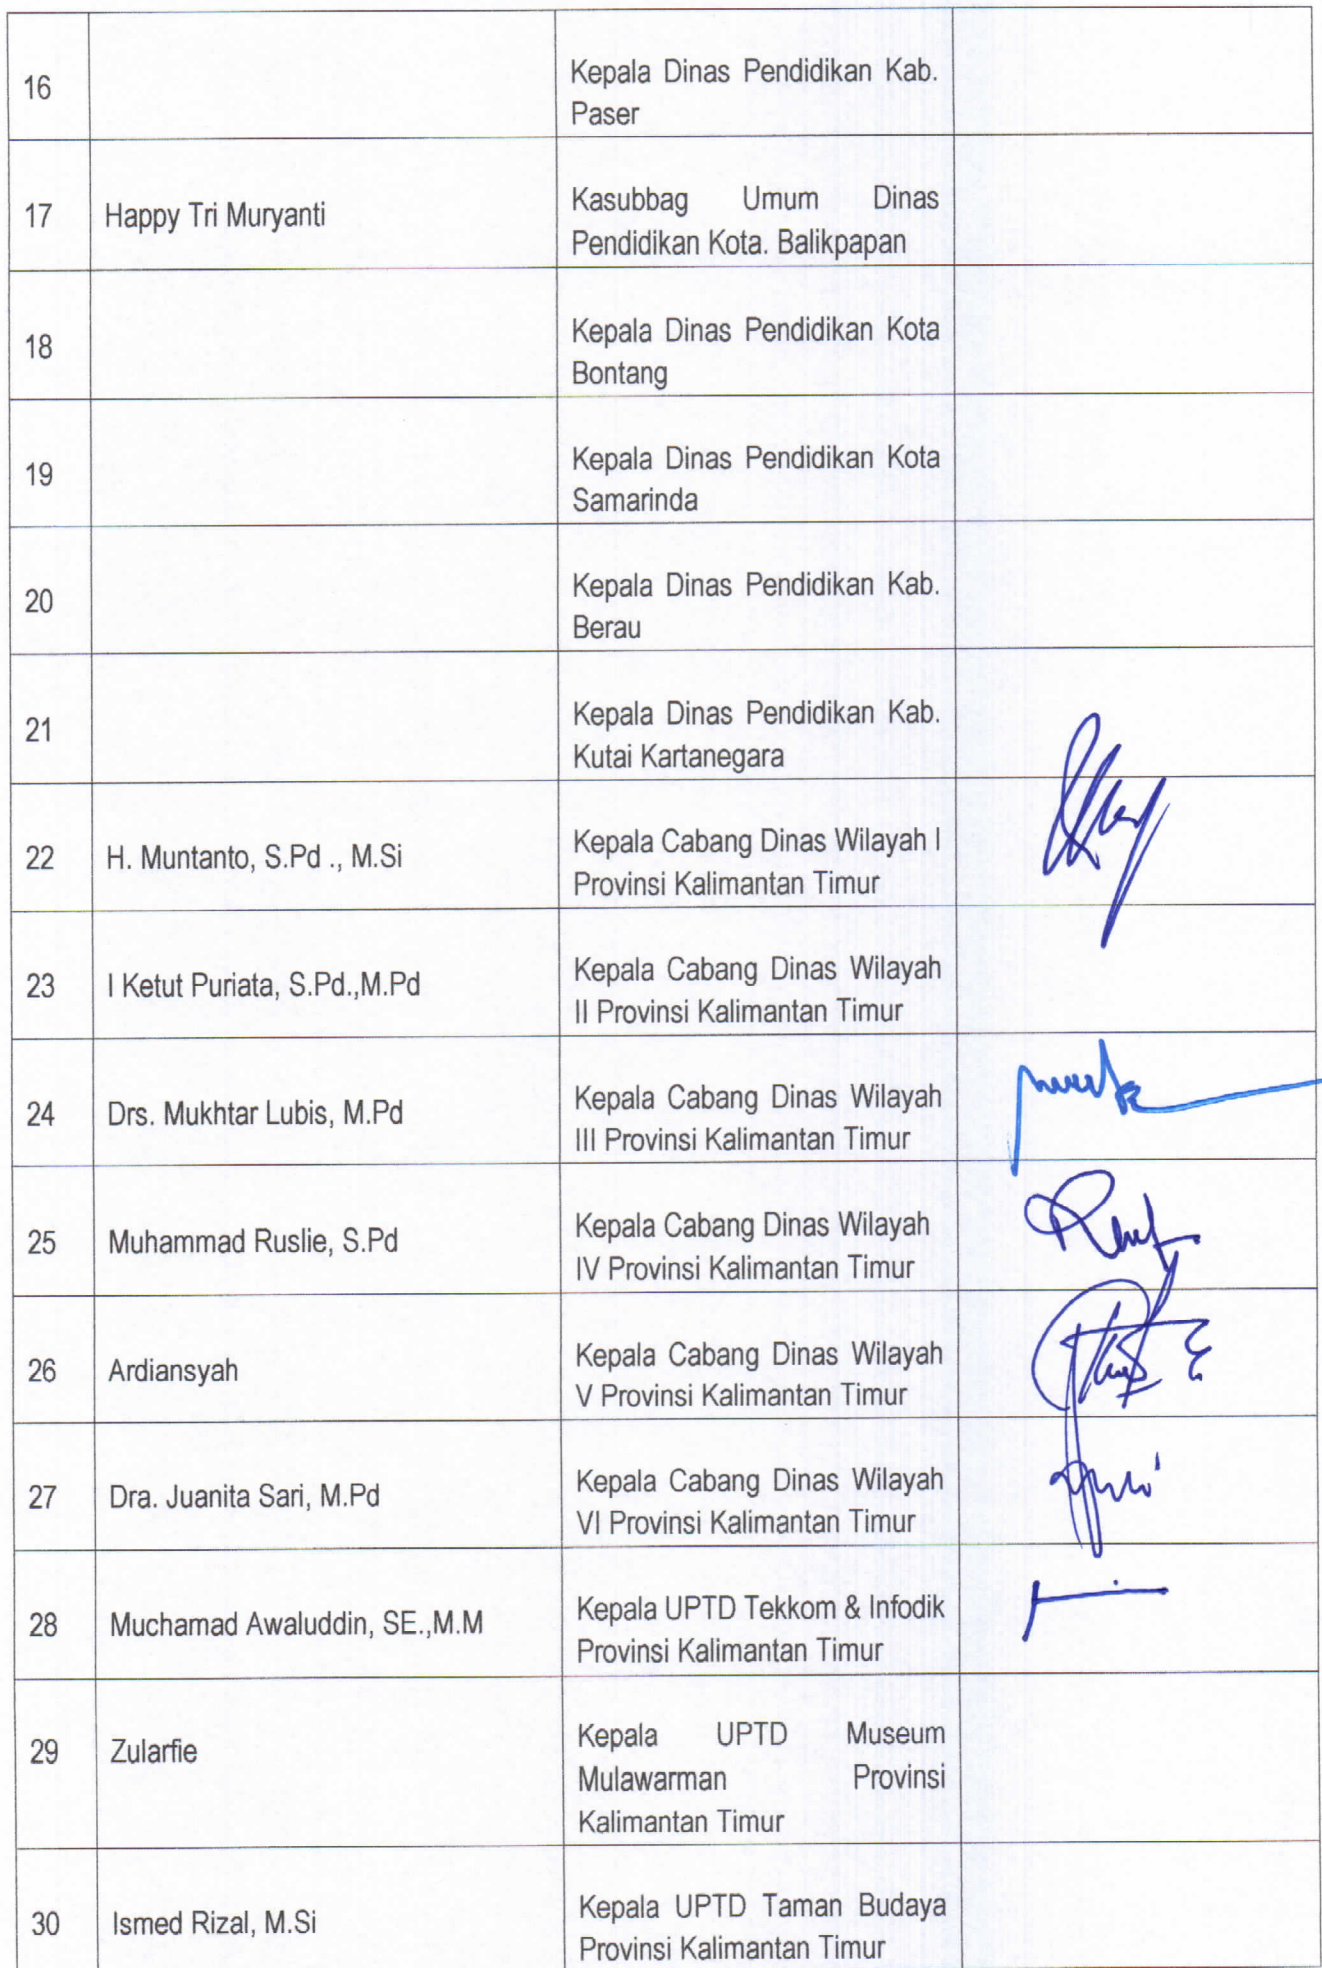 16
Kepala Dinas Pendidikan Kab.
Paser
17
Happy Tri Muryanti
Kasubbag Umum Dinas
Pendidikan Kota. Balikpapan
18
Kepala Dinas Pendidikan Kota
Bontang
19
Kepala Dinas Pendidikan Kota
Samarinda
20
Kepala Dinas Pendidikan Kab.
Berau
21
Kepala Dinas Pendidikan Kab.
Kutai Kartanegara
22
H. Muntanto, S.Pd ., M.Si
Kepala Cabang Dinas Wilayah I
Provinsi Kalimantan Timur
23
I Ketut Puriata, S.Pd.,M.Pd
Kepala Cabang Dinas Wilayah
II Provinsi Kalimantan Timur
24
Drs. Mukhtar Lubis, M.Pd
Kepala Cabang Dinas Wilayah
III Provinsi Kalimantan Timur
25
Muhammad Ruslie, S.Pd
Kepala Cabang Dinas Wilayah
IV Provinsi Kalimantan Timur
26
Ardiansyah
Kepala Cabang Dinas Wilayah
V Provinsi Kalimantan Timur
27
Dra. Juanita Sari, M.Pd
Kepala Cabang Dinas Wilayah
VI Provinsi Kalimantan Timur
28
Muchamad Awaluddin, SE.,M.M
Kepala UPTD Tekkom & Infodik
Provinsi Kalimantan Timur
29
Zularfie
Kepala UPTD Museum
Mulawarman Provinsi
Kalimantan Timur
30
Ismed Rizal, M.Si
Kepala UPTD Taman Budaya
Provinsi Kalimantan Timur